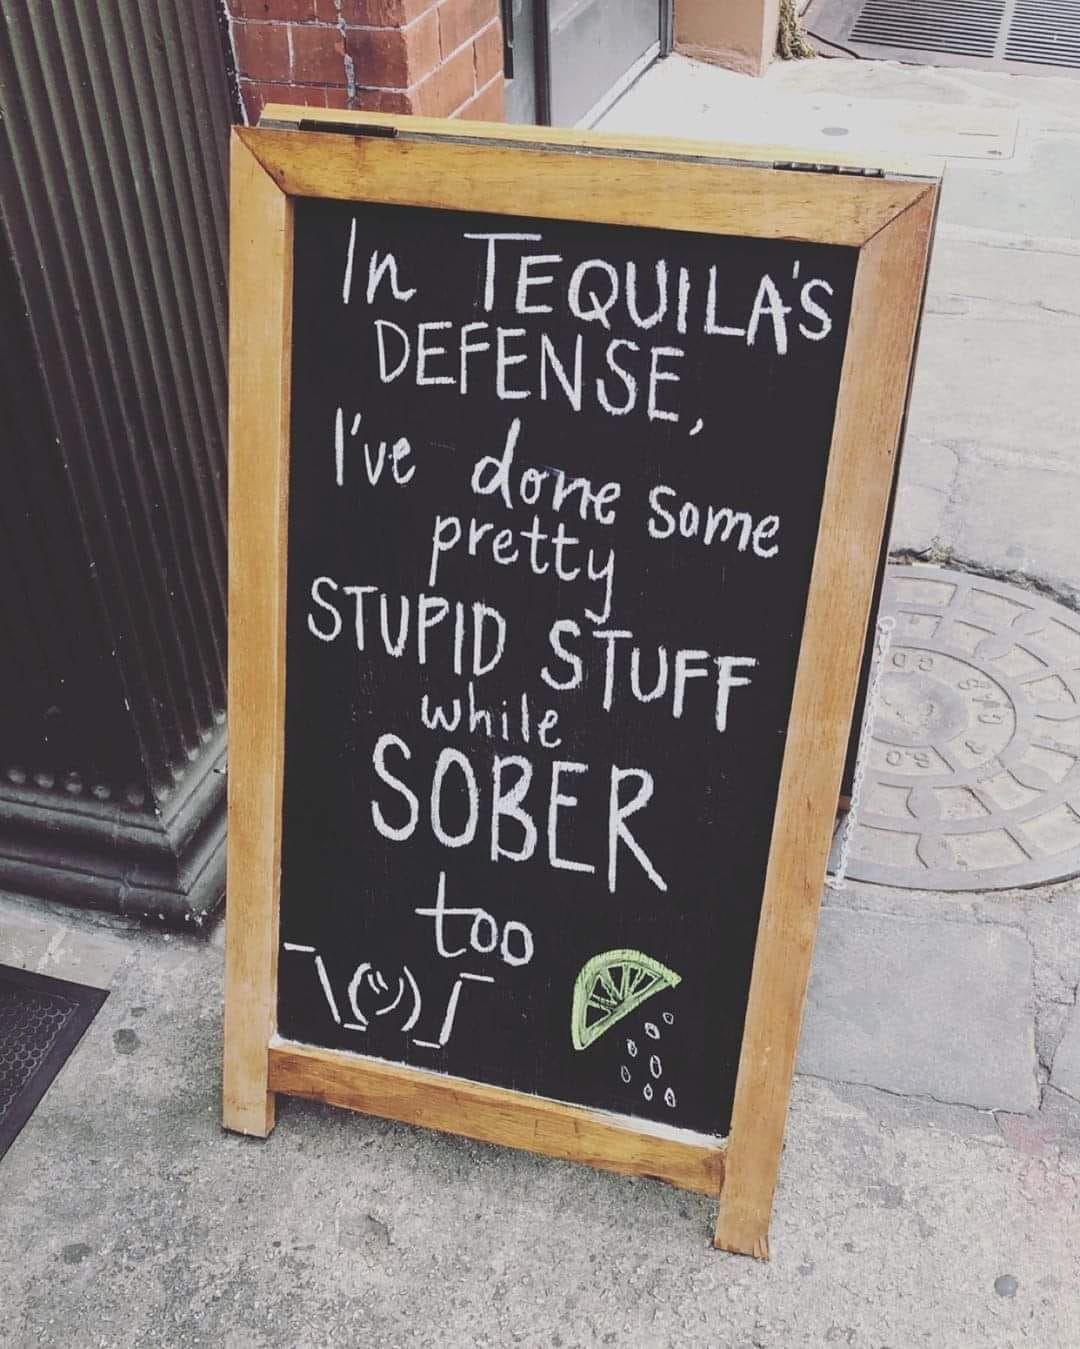 In TEQUILA'S
DEFENSE,
I've done some
pretty
STUPID STUFF
while
SOBER
too
¯\_(ツ)_/¯